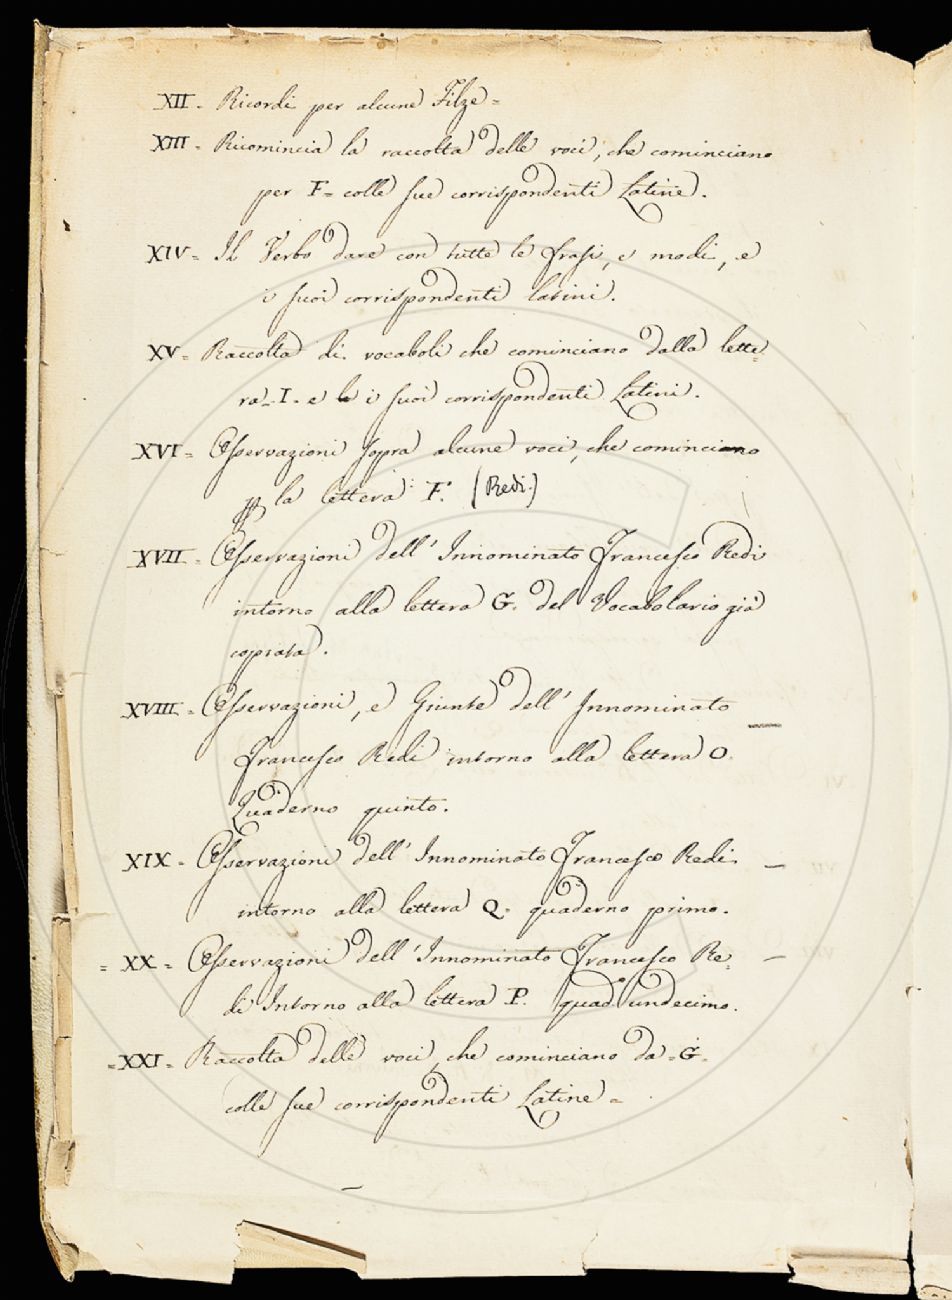 XII - Ricordi per alcune Filze =
XIII - Ricomincia la raccolta delle voci, che cominciano
per F = colle sue corrispondenti Latine.
XIV = Il Verbo dare con tutte le frasi, e modi, e
i suoi corrispondenti latini.
XV = Raccolta di vocaboli che cominciano dalla lette=
ra - I - e i suoi corrispondenti Latini.
XVI = Osservazioni sopra alcune voci, che cominciano
la lettera F. (Redi.)
XVII - Osservazioni dell' Innominato Francesco Redi
intorno alla lettera G. del Vocabolario già
copiata.
XVIII = Osservazioni, e Giunte dell' Innominato
Francesco Redi intorno alla lettera O.
Quaderno quinto.
XIX - Osservazioni dell' Innominato Francesco Redi
intorno alla lettera Q = quaderno primo.
= XX = Osservazioni dell' Innominato Francesco Re=
di Intorno alla lettera P. quad.o undecimo.
= XXI = Raccolta delle voci, che cominciano da = G =
colle sue corrispondenti Latine =